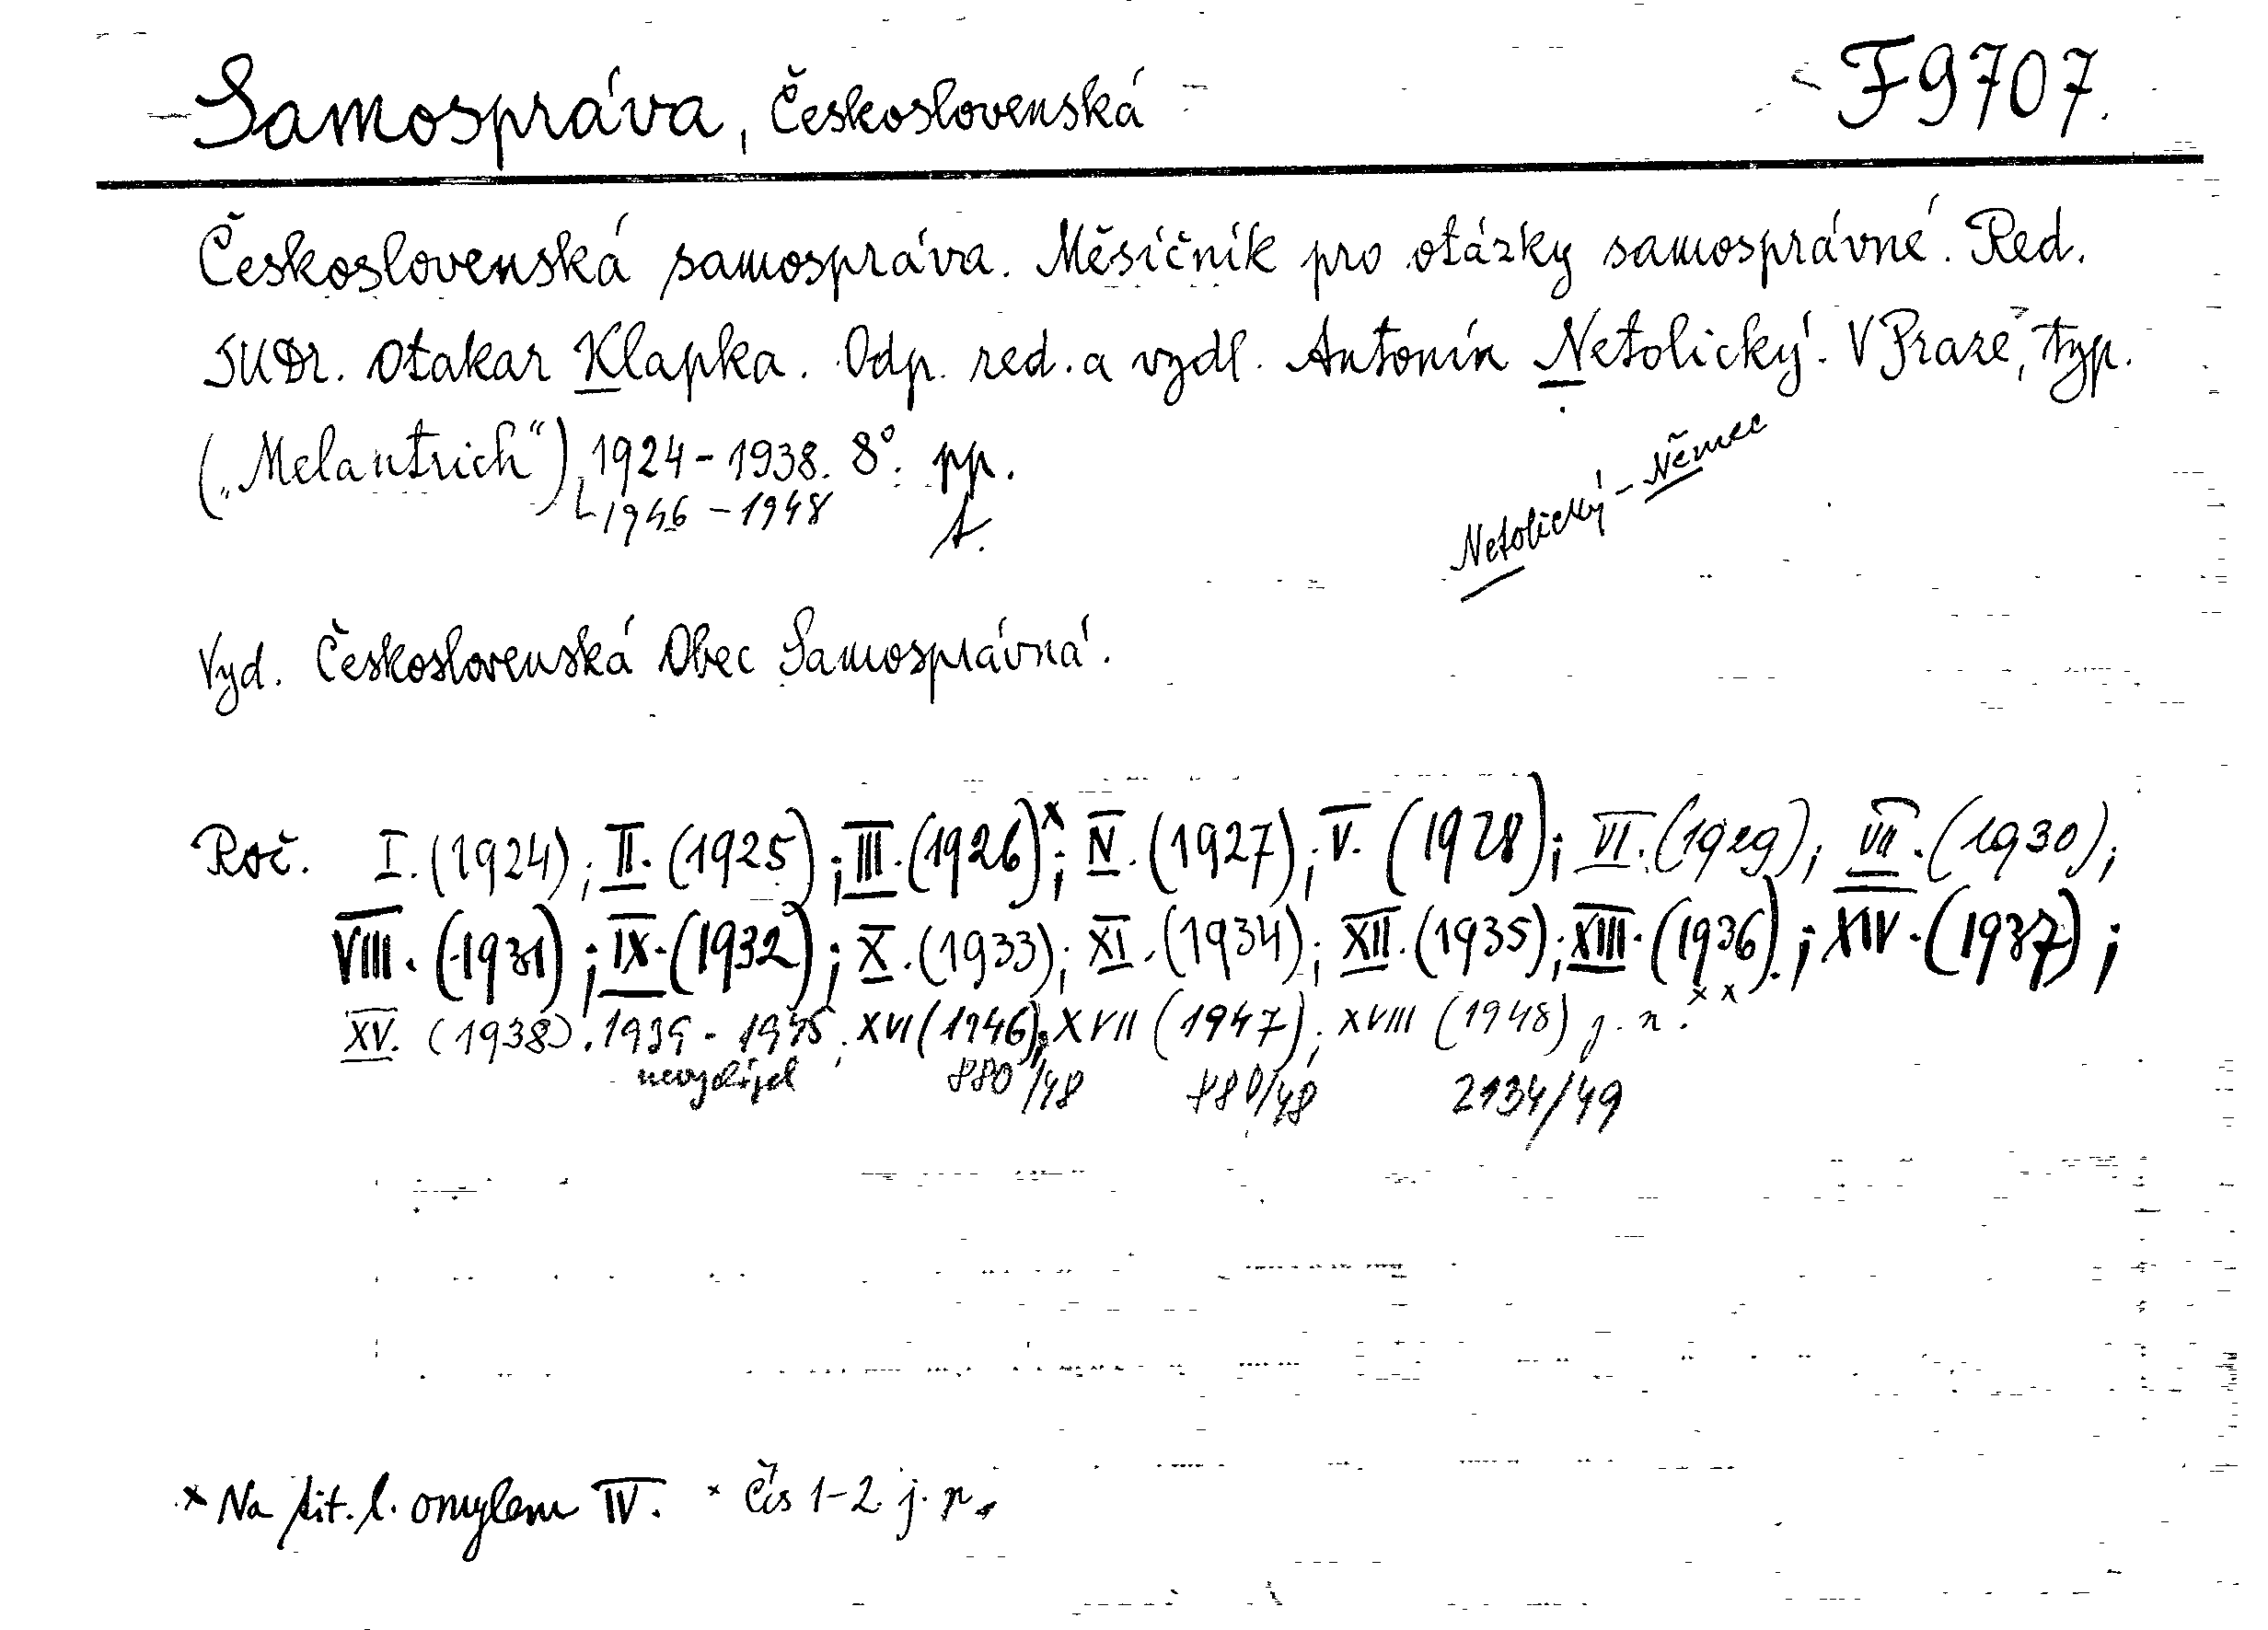 Samospráva, Československá F 9707.
Československá samospráva. Měsíčník pro otázky samosprávné. Red.
JUDr. Otakar Klapka. Odp. red. a vydl. Antonín Netolický. V Praze, typ.
(„Melantrich“) 1924-1938. 8°. pp.
1946-1948 t.
Netolický - Němec
Vyd. Československá Obec Samosprávná.
Roč. I. (1924); II. (1925); III. (1926)ˣ; IV. (1927); V. (1928); VI. (1929); VII. (1930);
VIII. (1931); IX. (1932); X. (1933); XI. (1934); XII. (1935); XIII. (1936).; XIV. (1937);
XV. (1938). 1939-1945; XVI (1946); XVII (1947); XVIII (1948) j. n. ˣˣ
nevycházel 880/48 880/48 2134/49
ˣ Na tit. l. omylem IV. ˣ Čís 1-2. j. n.